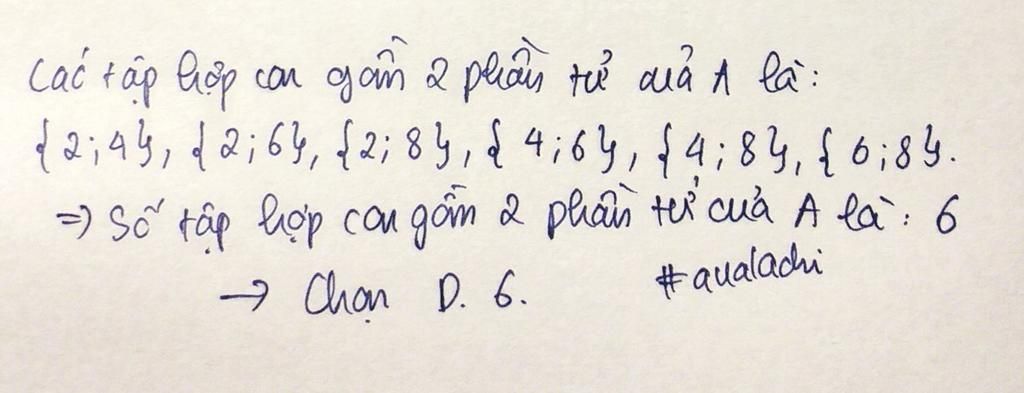 Các tập hợp con gồm 2 phần tử của A là:
{2;4}, {2;6}, {2;8}, {4;6}, {4;8}, {6;8}.
=> Số tập hợp con gồm 2 phần tử của A là: 6
→ Chọn D. 6. #aualachi